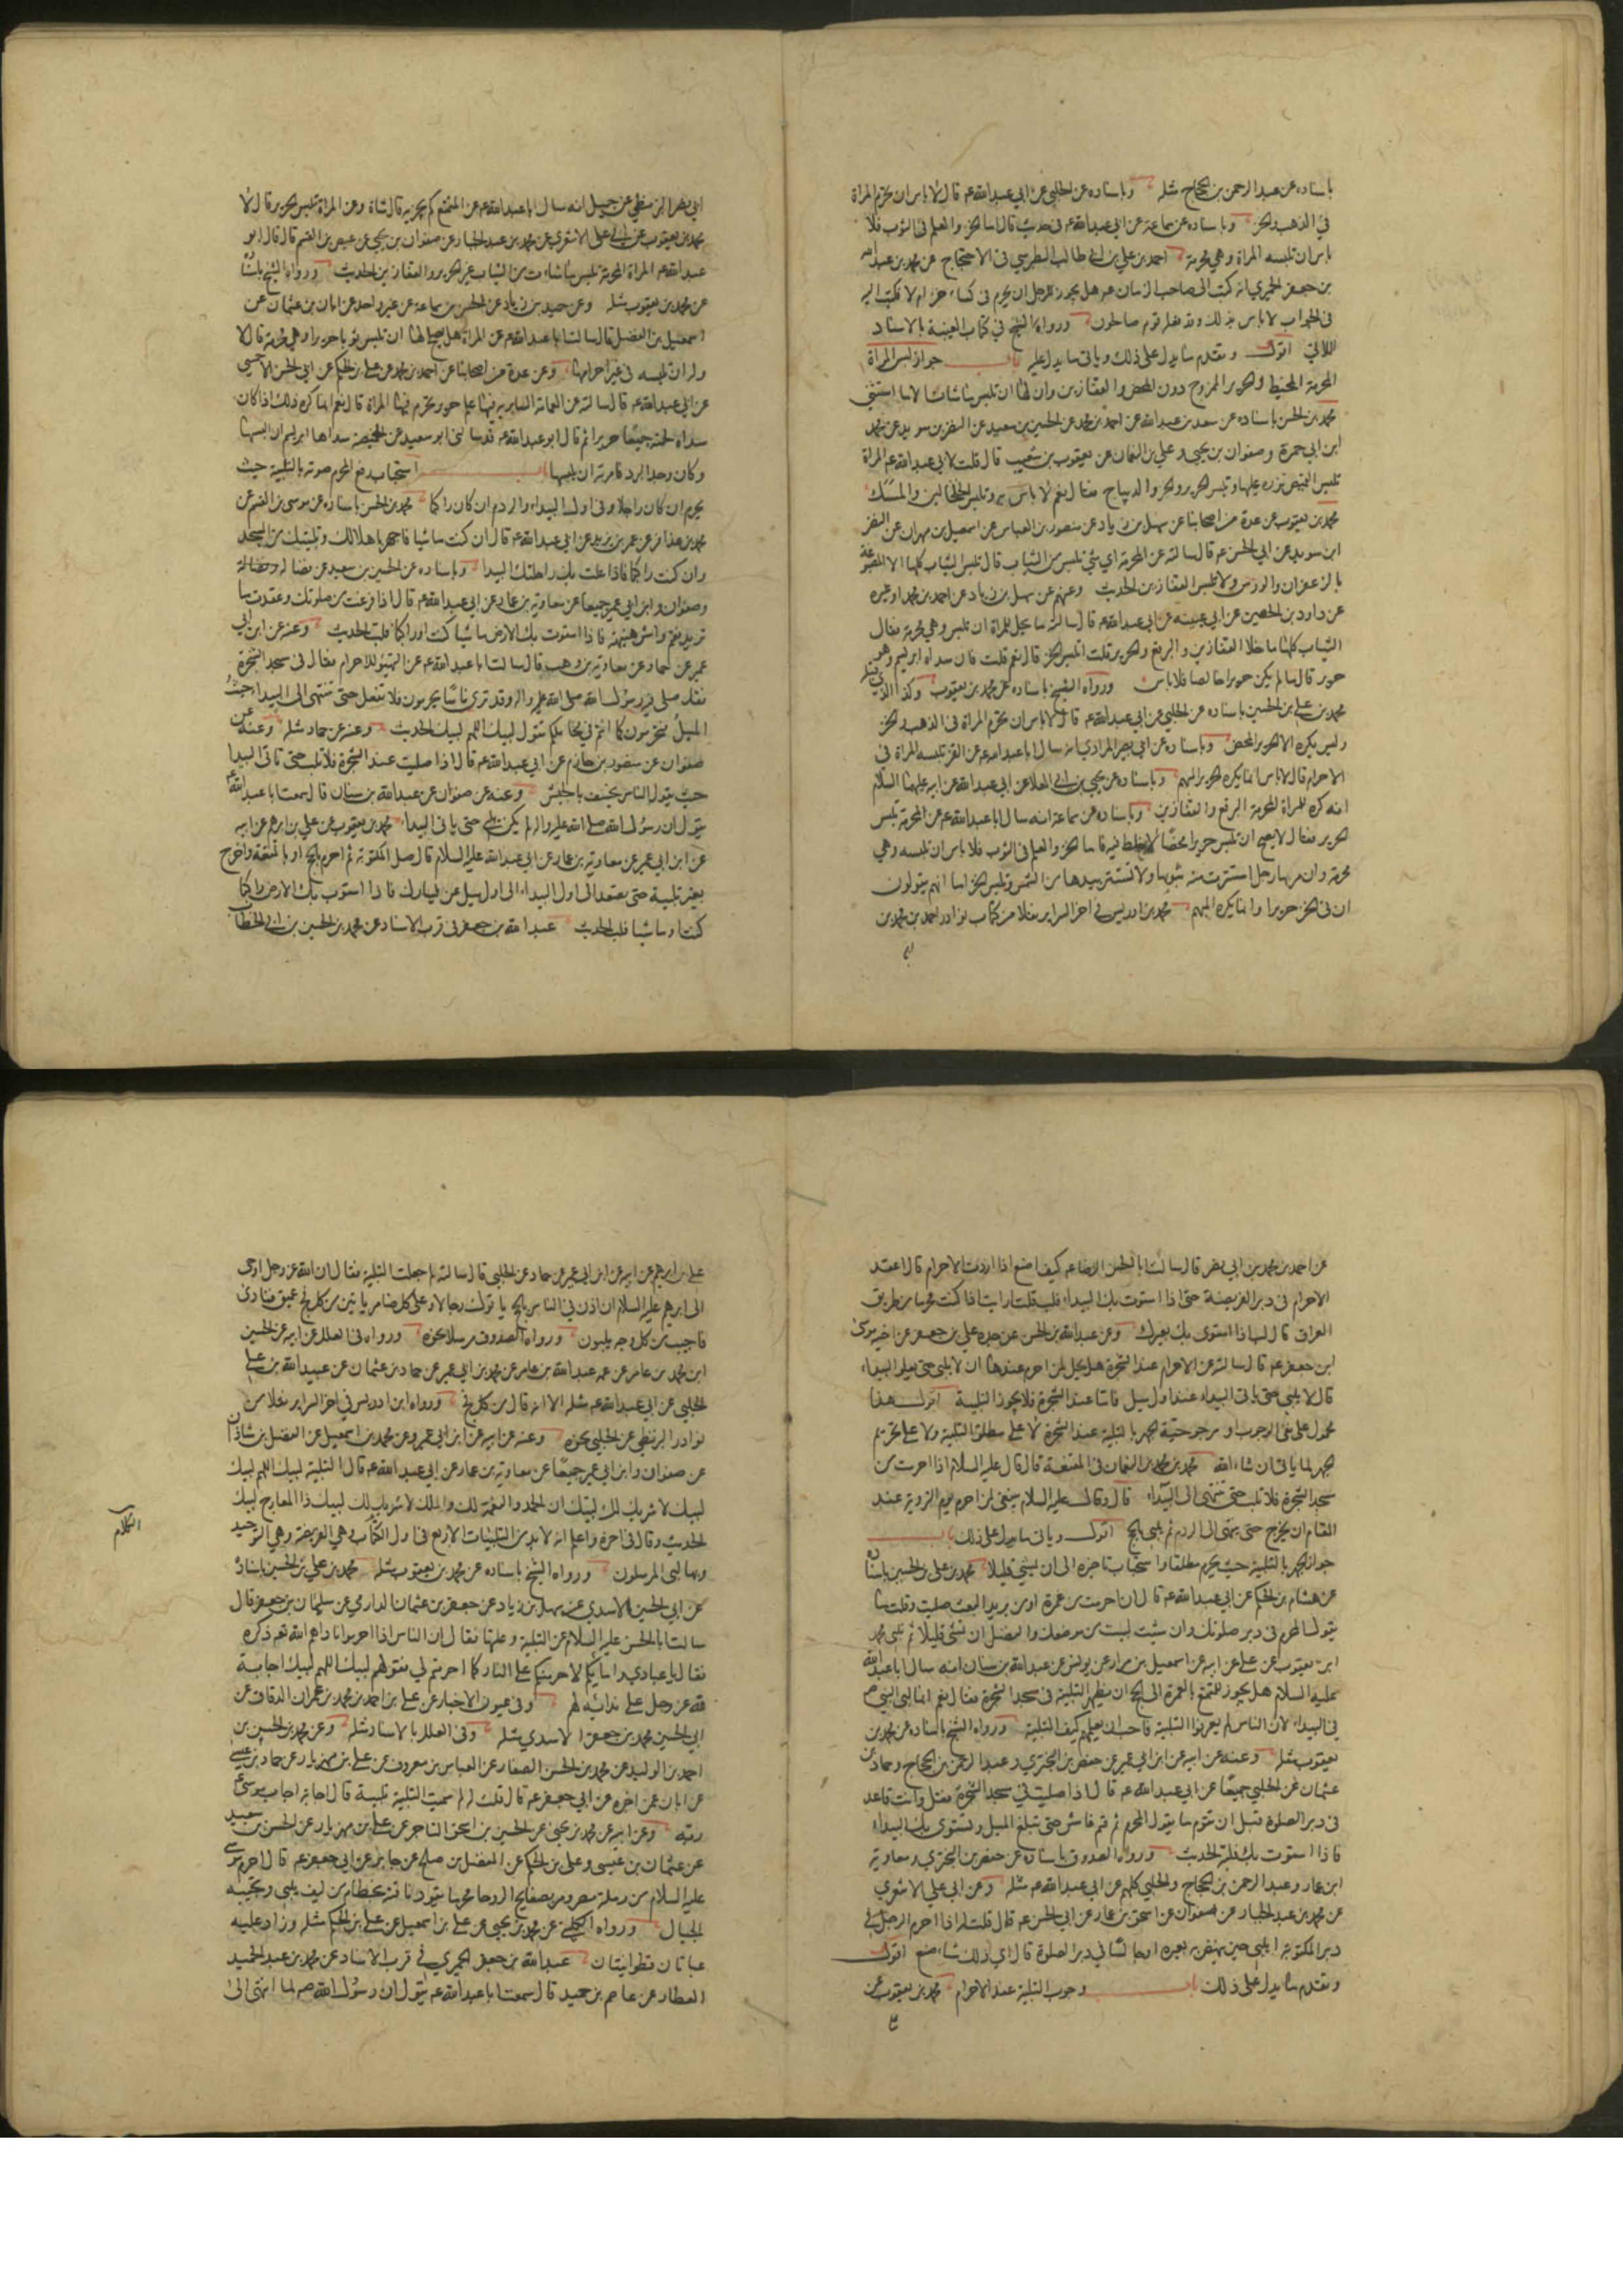 باسناده عن عبد الرحمن بن الحجاج مثله وباسناده عن الحلبي عن ابي عبد الله عم قال لا باس ان يحرم المراة
في الذهب والخز وباسناده عن سماعة عن ابي عبد الله عم في حديث قال اما الخز والعلم في الثوب فلا
باس ان تلبسه المراة وهي محرمة احمد بن علي بن ابي طالب الطبرسي في الاحتجاج عن محمد بن عبد الله
بن جعفر الحميري انه كتب الى صاحب الزمان عم هل يجوز للرجل ان يحرم في كساء خز ام لا فكتب اليه
في الجواب لا باس بذلك وقد فعله قوم صالحون ورواه الشيخ في كتاب الغيبة بالاسناد
الاتي اقول وتقدم ما يدل على ذلك وياتي ما يدل عليه باب جواز لبس المراة
المحرمة المخيط والحرير الممزوج دون المحض والقفازين وان لها ان تلبس ما شاءت الا ما استثنى
محمد بن الحسن باسناده عن سعد بن عبد الله عن احمد بن محمد عن الحسين بن سعيد عن النضر بن سويد عن محمد
ابن ابي حمزة وصفوان بن يحيى وعلي بن النعمان عن يعقوب بن شعيب قال قلت لابي عبد الله عم المراة
تلبس القميص تزره عليها وتلبس الحرير والخز والديباج فقال نعم لا باس به وتلبس الخلخالين والمسك
محمد بن يعقوب عن عدة من اصحابنا عن سهل بن زياد عن منصور بن العباس عن اسمعيل بن مهران عن النضر
ابن سويد عن ابي الحسن عم قال سالته عن المحرمة اي شي تلبس من الثياب قال تلبس الثياب كلها الا المصبوغة
بالزعفران والورس ولا تلبس القفازين الحديث وعنهم عن سهل بن زياد عن احمد بن محمد او غيره
عن داود بن الحصين عن ابي عيينه عن ابي عبد الله عم قال سالته ما يحل للمراة ان تلبس وهي محرمة فقال
الثياب كلها ما خلا القفازين والبرقع والحرير قلت اتلبس الخز قال نعم قلت فان سداه ابريسم وهو
حرير قال ما لم يكن حريرا خالصا فلا باس ورواه الشيخ باسناده عن محمد بن يعقوب وكذا الذي قبله
محمد بن علي بن الحسين باسناده عن الحلبي عن ابي عبد الله عم قال لا باس ان تحرم المراة في الذهب والخز
وليس يكره الا الحرير المحض وباسناده عن ابي بصير المرادي انه سال ابا عبد الله عم عن القز تلبسه المراة في
الاحرام قال لا باس انما يكره الحرير المبهم وباسناده عن يحيى بن ابي العلا عن ابي عبد الله عن ابيه عليهما السلام
انه كره للمراة المحرمة البرقع والقفازين وباسناده عن سماعة انه سال ابا عبد الله عم عن المحرمة تلبس
الحرير فقال لا يصح ان تلبس حريرا محضا لا خلط فيه فاما الخز والعلم في الثوب فلا باس ان تلبسه وهي
محرمة وان مر بها رجل استترت منه بثوبها ولا تستتر بيدها من الشمس وتلبس الخز اما انهم يقولون
ان في الخز حريرا وانما يكره المبهم محمد بن ادريس في اخر السراير نقلا من كتاب نوادر احمد بن محمد بن
ابي نصر البزنطي عن جميل انه سال ابا عبد الله عم عن المتمتع كم يجزيه قال شاة وعن المراة تلبس الحرير قال لا
محمد بن يعقوب عن ابي علي الاشعري عن محمد بن عبد الجبار عن صفوان بن يحيى عن عيص بن القسم قال قال ابو
عبد الله عم المراة المحرمة تلبس ما شاءت من الثياب غير الحرير والقفازين الحديث ورواه الشيخ باسناده
عن محمد بن يعقوب مثله وعن حميد بن زياد عن الحسن بن سماعة عن غير واحد عن ابان بن عثمان عن
اسمعيل بن الفضل قال سالت ابا عبد الله عم عن المراة هل يصلح لها ان تلبس ثوبا حريرا وهي محرمة قال لا
ولها ان تلبسه في غير احرامها وعن عدة من اصحابنا عن احمد بن محمد عن علي بن الحكم عن ابي الحسن الاحمسي
عن ابي عبد الله عم قال سالته عن العمامة السابرية فيها علم حرير تحرم فيها المراة قال نعم انما كره ذلك اذا كان
سداه ولحمته جميعا حريرا ثم قال ابو عبد الله عم قد سالني ابو سعيد عن الخميصة سداها ابريسم ان البسها
وكان وجد البرد فامرته ان يلبسها باب استحباب رفع المحرم صوته بالتلبية حيث
يحرم ان كان راجلا وفي اول البيداء والردم ان كان راكبا محمد بن الحسن باسناده عن موسى بن القسم عن
محمد بن عذافر عن عمر بن يزيد عن ابي عبد الله عم قال ان كنت ماشيا فاجهر باهلالك وتلبيتك من المسجد
وان كنت راكبا فاذا علت بك راحلتك البيدا وباسناده عن الحسين بن سعيد عن فضالة
وصفوان وابن ابي عمير جميعا عن معاوية بن عمار عن ابي عبد الله عم قال اذا فرغت من صلوتك وعقدت ما
تريد فقم وامش هنيهة فاذا استوت بك الارض ماشيا كنت او راكبا فلب الحديث وعنه عن ابن ابي
عمير عن حماد عن معاوية بن وهب قال سالت ابا عبد الله عم عن التهيؤ للاحرام فقال في مسجد الشجرة
فقد صلى فيه رسول الله صلى الله عليه واله وقد ترى ناسا يحرمون فلا تفعل حتى تنتهي الى البيداء حيث
الميل فتحرمون كما انتم في محاملكم تقول لبيك اللهم لبيك الحديث وعنه عن حماد مثله وعنه عن
صفوان عن منصور بن حازم عن ابي عبد الله عم قال اذا صليت عند الشجرة فلا تلب حتى تاتي البيدا
حيث يقول الناس يخسف بالجيش وعنه عن صفوان عن عبد الله بن سنان قال سمعت ابا عبد الله عم
يقول ان رسول الله صلى الله عليه واله لم يكن يلبي حتى ياتي البيداء محمد بن يعقوب عن علي بن ابرهيم عن ابيه
عن ابن ابي عمير عن معاوية بن عمار عن ابي عبد الله عليه السلام قال صل المكتوبة ثم احرم بالحج او بالمتعة واخرج
بغير تلبية حتى تصعد الى اول البيداء الى اول ميل عن يسارك فاذا استوت بك الارض راكبا
كنت او ماشيا فلب الحديث عبد الله بن جعفر في قرب الاسناد عن محمد بن الحسين بن ابي الخطاب
عن احمد بن محمد بن ابي نصر قال سالت ابا الحسن الرضا عم كيف اصنع اذا اردت الاحرام قال اعقد
الاحرام في دبر الفريضة حتى اذا استوت بك البيداء فلب قلت ارايت اذا كنت محرما من طريق
العراق قال لب اذا استوى بك بعيرك وعن عبد الله بن الحسن عن جده علي بن جعفر عن اخيه موسى
ابن جعفر عم قال سالته عن الاحرام عند الشجرة هل يحل لمن احرم عندها ان لا يلبي حتى يعلو البيداء
قال لا يلبي حتى ياتي البيداء عند اول ميل فاما عند الشجرة فلا يجوز التلبية اقول هذا
محمول على نفي الوجوب او مرجوحية الجهر بالتلبية عند الشجرة لا على مطلق التلبية ولا على تحريم
الجهر لما ياتي ان شاء الله محمد بن محمد بن النعمان في المقنعة قال قال عليه السلام اذا احرمت من
مسجد الشجرة فلا تلب حتى تنتهي الى البيداء قال وقال عليه السلام ينبغي لمن احرم يوم التروية عند
المقام ان يخرج حتى ينتهي الى الردم ثم يلبي بالحج اقول وياتي ما يدل على ذلك باب
جواز الجهر بالتلبية حيث يحرم مطلقا واستحباب تاخيره الى ان يمشي قليلا محمد بن علي بن الحسين باسناده
عن هشام بن الحكم عن ابي عبد الله عم قال ان احرمت من غمرة او من بريد البعث صليت وقلت ما
يقول المحرم في دبر صلوتك وان شئت لبيت من موضعك والفضل ان تمشي قليلا ثم تلبي محمد
ابن يعقوب عن علي عن ابيه عن اسمعيل بن مرار عن يونس عن عبد الله بن سنان انه سال ابا عبد الله
عليه السلام هل يجوز للمتمتع بالعمرة الى الحج ان يظهر التلبية في مسجد الشجرة فقال نعم انما لبى النبي ص
في البيداء لان الناس لم يعرفوا التلبية فاحب ان يعلمهم كيف التلبية ورواه الشيخ باسناده عن محمد بن
يعقوب مثله وعنه عن ابيه عن ابن ابي عمير عن حفص بن البختري وعبد الرحمن بن الحجاج وحماد بن
عثمان عن الحلبي جميعا عن ابي عبد الله عم قال اذا صليت في مسجد الشجرة فقل وانت قاعد
في دبر الصلوة قبل ان تقوم ما يقول المحرم ثم قم فامش حتى تبلغ الميل وتستوي بك البيداء
فاذا استوت بك فلبه الحديث ورواه الصدوق باسناده عن حفص بن البختري ومعاوية
ابن عمار وعبد الرحمن بن الحجاج والحلبي كلهم عن ابي عبد الله عم مثله وعن ابي علي الاشعري
عن محمد بن عبد الجبار عن صفوان عن اسحق بن عمار عن ابي الحسن عم قال قلت له اذا احرم الرجل في
دبر المكتوبة ايلبي حين ينهض به بعيره او جالسا في دبر الصلوة قال اي ذلك شاء صنع اقول
وتقدم ما يدل على ذلك باب وجوب التلبية عند الاحرام محمد بن يعقوب عن
علي بن ابرهيم عن ابيه عن ابن ابي عمير عن حماد عن الحلبي قال سالته لم جعلت التلبية فقال ان الله عز وجل اوحى
الى ابرهيم عليه السلام ان اذن في الناس بالحج ياتوك رجالا وعلى كل ضامر ياتين من كل فج عميق فنادى
فاجيب من كل وجه يلبون ورواه الصدوق مرسلا نحوه ورواه في العلل عن ابيه عن الحسين
ابن محمد بن عامر عن عمه عبد الله بن عامر عن محمد بن ابي عمير عن حماد بن عثمان عن عبيد الله بن علي
الحلبي عن ابي عبد الله عم مثله الا انه قال من كل فج ورواه ابن ادريس في اخر السراير نقلا من
نوادر البزنطي عن الحلبي نحوه وعنه عن ابيه عن ابن ابي عمير وعن محمد بن اسمعيل عن الفضل بن شاذان
عن صفوان وابن ابي عمير جميعا عن معاوية بن عمار عن ابي عبد الله عم قال التلبية لبيك اللهم لبيك
لبيك لا شريك لك لبيك ان الحمد والنعمة لك والملك لا شريك لك لبيك ذا المعارج لبيك
الحديث وقال في اخره واعلم انه لا بد من التلبيات الاربع في اول الكتاب وهي الفريضة وهي التوحيد
وبها لبى المرسلون ورواه الشيخ باسناده عن محمد بن يعقوب مثله محمد بن علي بن الحسين باسناده
عن ابي الحسين الاسدي عن سهل بن زياد عن جعفر بن عثمان الدارمي عن سليمان بن جعفر قال
سالت ابا الحسن عليه السلام عن التلبية وعلتها فقال ان الناس اذا احرموا ناداهم الله تعم ذكره
فقال يا عبادي وامايي لاحرمنكم على النار كما احرمتم لي فقولهم لبيك اللهم لبيك اجابة
لله عز وجل على ندائه لهم وفي عيون الاخبار عن علي بن احمد بن محمد بن عمران الدقاق عن
ابي الحسين محمد بن جعفر الاسدي مثله وفي العلل بالاسناد مثله وعن محمد بن الحسن بن
احمد بن الوليد عن محمد بن الحسن الصفار عن العباس بن معروف عن علي بن مهزيار عن حماد بن عيسى
عن ابان عمن اخبره عن ابي جعفر عم قال قلت له لم سميت التلبية تلبية قال اجابة اجاب موسى عم
ربه وعن ابيه عن محمد بن يحيى عن الحسين بن اسحق التاجر عن علي بن مهزيار عن الحسن بن سعيد
عن عثمان بن عيسى وعلي بن الحكم عن المفضل بن صالح عن جابر عن ابي جعفر عم قال احرم موسى
عليه السلام من رملة مصر ومر بصفايح الروحا محرما يقود ناقته بخطام من ليف يلبي وتجيبه
الجبال ورواه الكليني عن محمد بن يحيى عن علي بن اسمعيل عن علي بن الحكم مثله وزاد عليه
عباتان قطوانيتان عبد الله بن جعفر الحميري في قرب الاسناد عن محمد بن عبد الحميد
العطار عن عاصم بن حميد قال سمعت ابا عبد الله عم يقول ان رسول الله صم لما انتهى الى